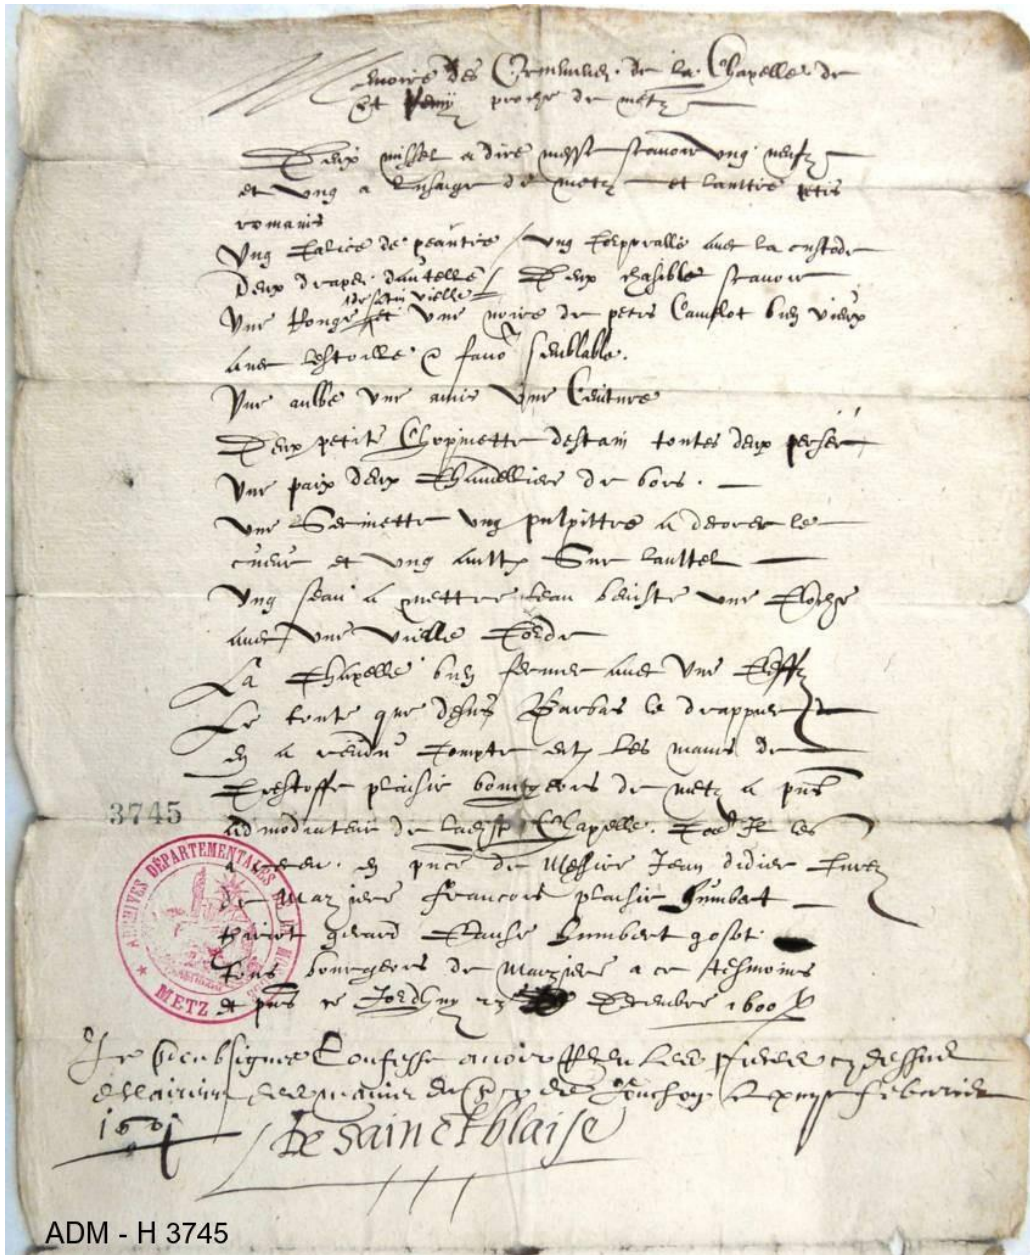 Memoire des Ornemens de la Chapelle de
St Remy proche de metz
Deux missel a dire messe scavoir ung neufz
et ung a lusaige de metz et lauttre petis
romains
Ung Calice de peautre / ung Corporalle avec la custode
Deux drapei dautelle / Deux chasible scavoir
de satin vielle
Une Rouge et une noire de petis Camelot bien vieux
avec lestolle & fano semblable.
Une aulbe une amis une Ceinture
Deux petite Chopinette destain toutes deux perser
Une paix deux Chandelliere de bois.
une Serinette ung pulpittre a decorer le
cueur et ung aultre Sur lauttel
Ung seau a mettre leau beniste une Cloche
avec une vielle Corde
La Chapelle bien fermer avec une Cleffz
Le toute que desus Barbas le drappier
en a rendu Compte entre les mains de
Crestoffe plaisir bourgeois de metz a pnt
admodiateur de ladicte Chapelle. Il les
3745
a receu. en pnce de Messire Jean didier Curez
de Maziere Francois plaisir Humbert
thiriot girard Humbert gosot.
tous bourgeois de Maziere a ce tesmoins
et pns ce Jourdhuy 23 Decembre 1600
Je soubsigne Confesse avoir receu les pieces cy dessus
des mains du febvrier
1601
De Sainctblaise
ARCHIVES DÉPARTEMENTALES DE LA MOSELLE
METZ
ADM - H 3745